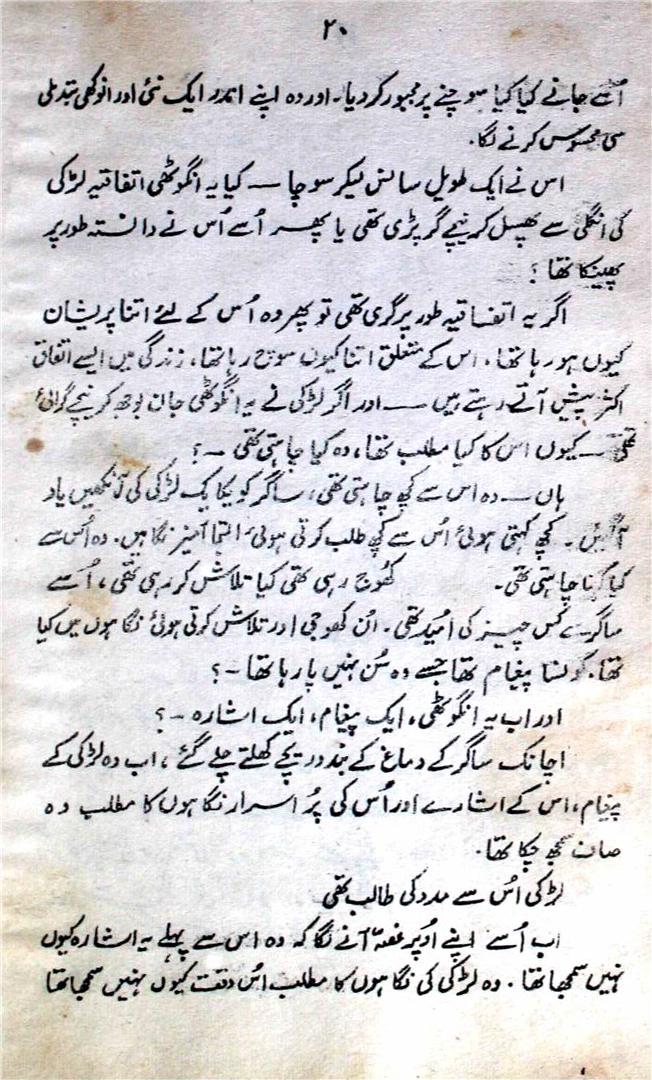 ۲۰
اُسے جانے کیا کیا سوچنے پر مجبور کر دیا۔ اور وہ اپنے اندر ایک نئی اور انوکھی تبدیلی
سی محسوس کرنے لگا۔
اس نے ایک طویل سانس لیکر سوچا — کیا یہ انگوٹھی اتفاقیہ لڑکی
کی انگلی سے پھسل کر نیچے گر پڑی تھی یا پھر اُسے اُس نے دانستہ طور پر
پھینکا تھا ؟
اگر یہ اتفاقیہ طور پر گری تھی تو پھر وہ اُس کے لئے اتنا پریشان
کیوں ہو رہا تھا۔ اس کے متعلق اتنا کیوں سوچ رہا تھا، زندگی میں ایسے اتفاق
اکثر پیش آتے رہتے ہیں — اور اگر لڑکی نے یہ انگوٹھی جان بوجھ کر نیچے گرائی
تھی — کیوں اس کا کیا مطلب تھا، وہ کیا چاہتی تھی ۔؟
ہاں — وہ اس سے کچھ چاہتی تھی، ساگر کو یکایک لڑکی کی آنکھیں یاد
آگئیں۔ کچھ کہتی ہوئی اُس سے کچھ طلب کرتی ہوئی التجا آمیز نگاہیں۔ وہ اُس سے
کیا کہنا چاہتی تھی۔ کھوج رہی تھی کیا تلاش کر رہی تھی، اُسے
ساگر سے کس چیز کی اُمید تھی۔ اُن کھوجی اور تلاش کرتی ہوئی نگاہوں میں کیا
تھا۔ کونسا پیغام تھا جسے وہ سُن نہیں پا رہا تھا ۔؟
اور اب یہ انگوٹھی، ایک پیغام، ایک اشارہ ۔؟
اچانک ساگر کے دماغ کے بند دریچے کھلتے چلے گئے، اب وہ لڑکی کے
پیغام، اس کے اشارے اور اُس کی پُر اسرار نگاہوں کا مطلب وہ
صاف سمجھ چکا تھا۔
لڑکی اُس سے مدد کی طالب تھی
اب اُسے اپنے اُوپر غصّہ آنے لگا کہ وہ اس سے پہلے یہ اشارہ کیوں
نہیں سمجھا تھا۔ وہ لڑکی کی نگاہوں کا مطلب اُس وقت کیوں نہیں سمجھا تھا